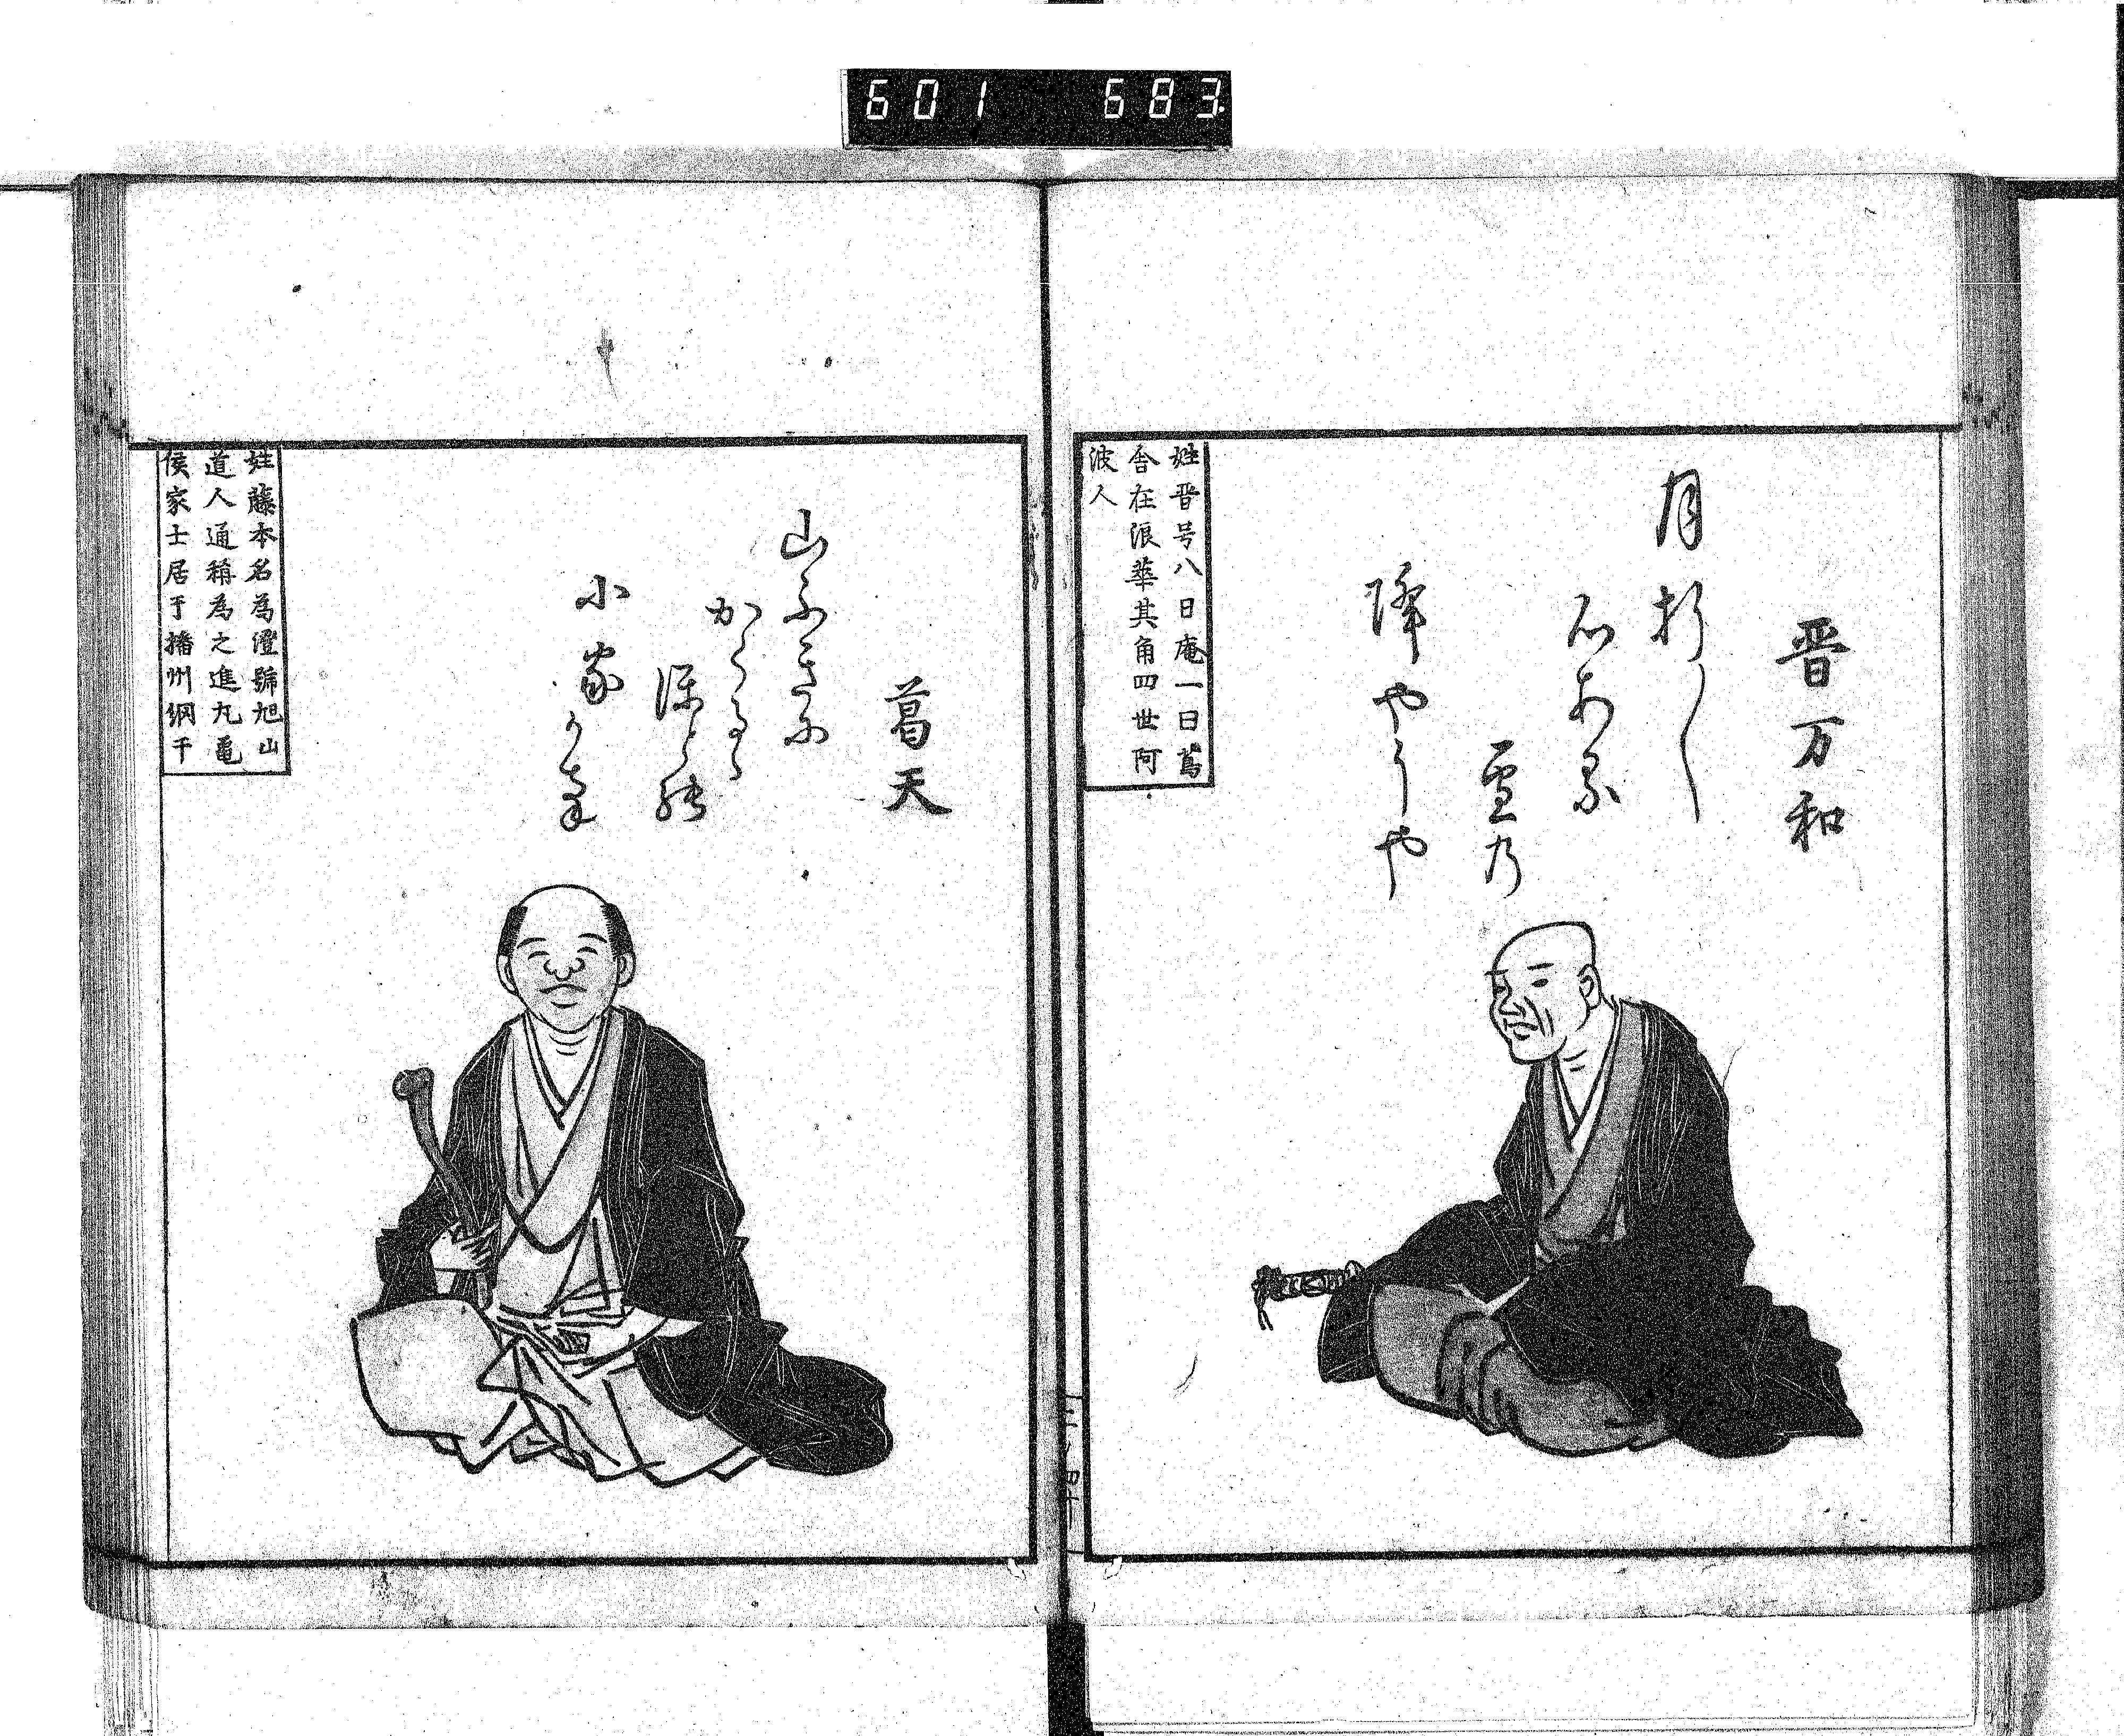 601 683
晋万和
月 折〳〵
心あるは
雪乃
降やうや
姓晋号八日庵一曰蔦
舎在浪華其角四世阿
波人
葛天
山ふきに
かくるゝ
ほとの
小家
姓藤本名為澄號旭山
道人通稱為之進丸亀
侯家士居于播州網干